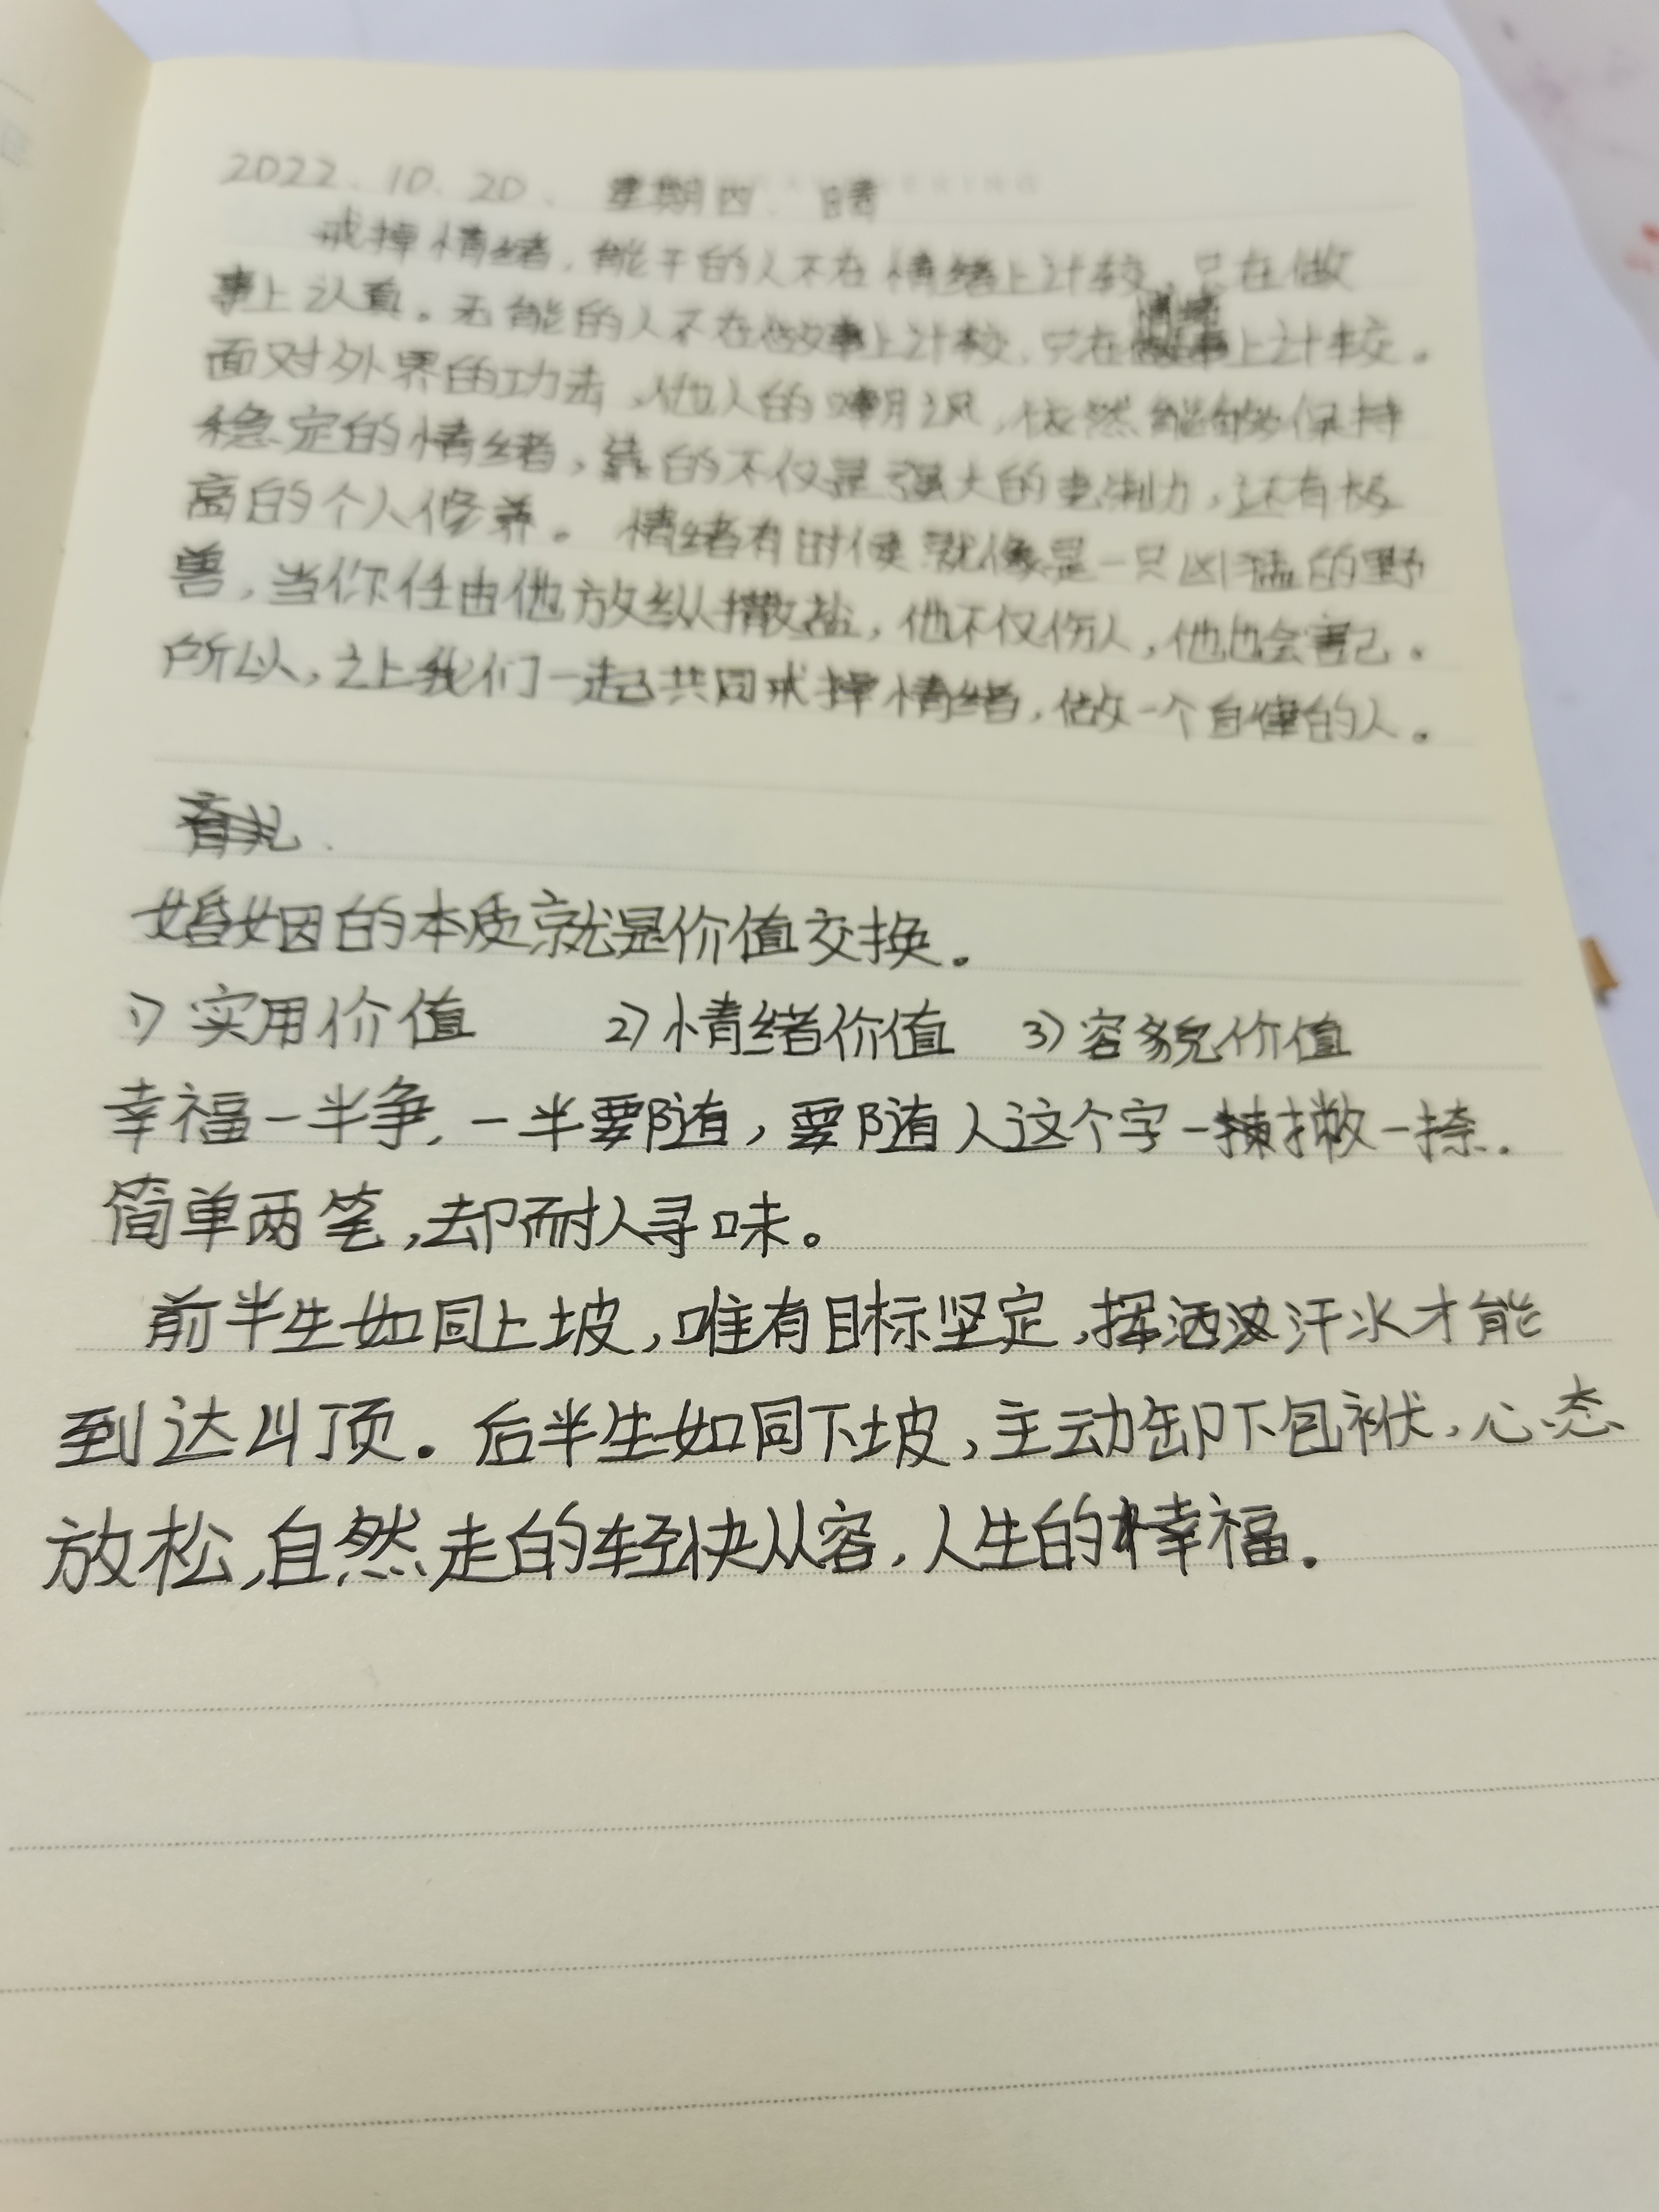 2022.10.20. 星期四. 晴
戒掉情绪，能干的人不在情绪上计较，只在做
事上认真。无能的人不在做事上计较，只在情绪上计较。
面对外界的功击，他人的嘲讽，依然能够保持
稳定的情绪，靠的不仅是强大的克制力，还有极
高的个人修养。情绪有时候就像是一只凶猛的野
兽，当你任由他放纵撒盐，他不仅伤人，他也会害己。
所以，让我们一起共同戒掉情绪，做一个自律的人。
婚姻的本质就是价值交换。
1）实用价值 2）情绪价值 3）容貌价值
幸福一半争，一半要随，要随人这个字一撇一捺.
简单两笔，却耐人寻味。
前半生如同上坡，唯有目标坚定，挥洒汗水才能
到达山顶。后半生如同下坡，主动卸下包袱，心态
放松，自然走的轻快从容，人生的幸福。